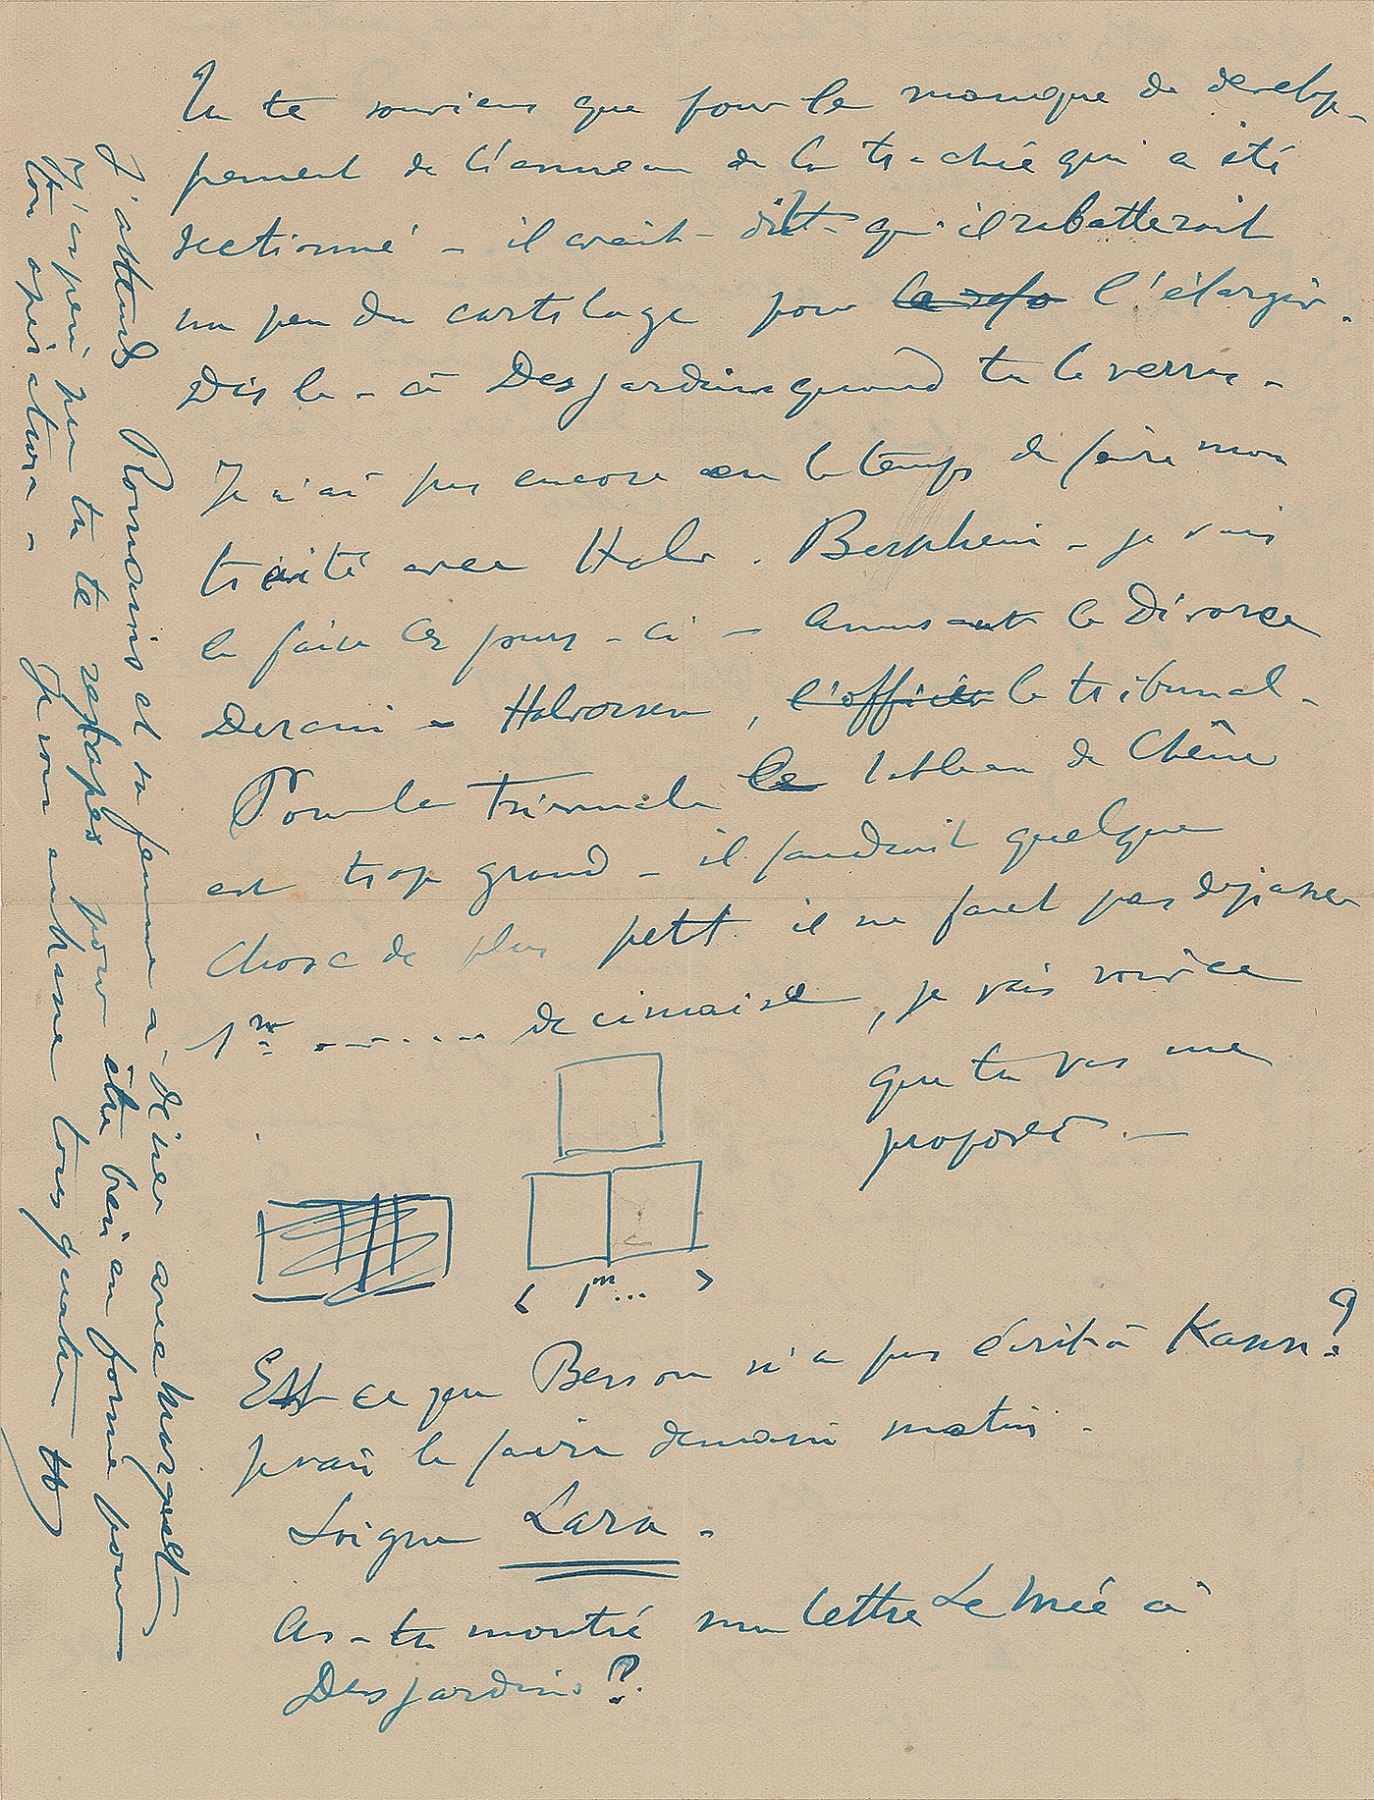 Tu te souviens que pour le manque de develop-
pement de l'anneau de la trachée qui a été
sectionné – il avait dit qu'il rabatterait
un peu du cartilage pour l'élargir.
Dis le – à Desjardins quand tu le verras –
Je n'ai pas encore eu le temps de faire mon
traité avec Halv. Bernheim – je vais
le faire ces jours-ci – Amusant le Divorce
Derain – Halvorsen, l'officier le tribunal –
Pour la Triennale le tableau de Chêne
est trop grand – il faudrait quelque
chose de plus petit. il ne faut pas dépasser
1m ....... de cimaise, je vais voir ce
que tu vas me
proposer. –
1m...
Est ce que Besson n'a pas écrit à Kann?
je vais le faire demain matin.
Soigne Lara.
As-tu montré ma lettre Le Mée à
Desjardins?
J'attends Romains et sa femme à diner avec Marquet
J'espère que tu te retapes pour être bien en forme pour
ton opérateur –
Je vous embrasse tous quatre H